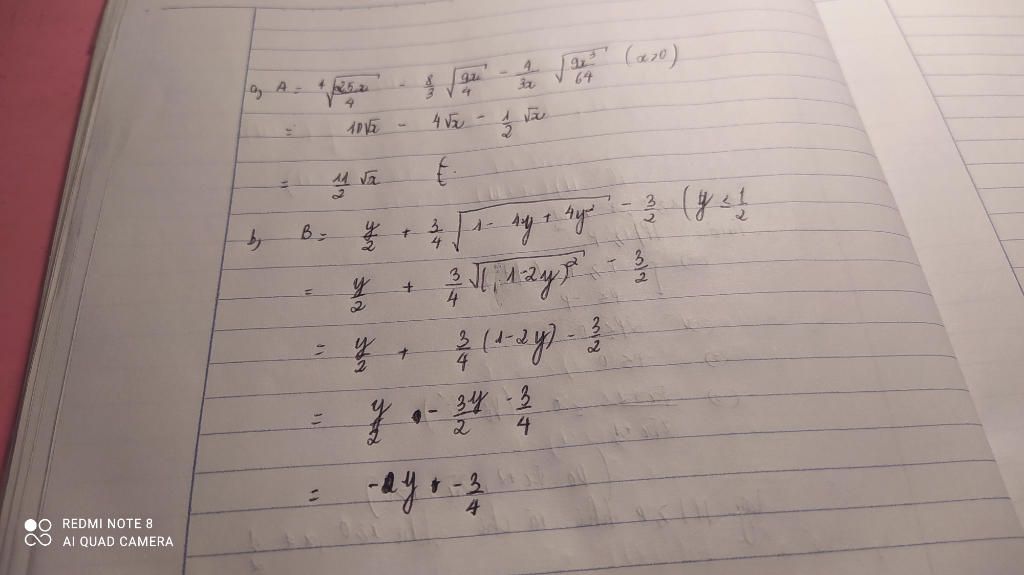 a, A = 4√(25x/4) - 8/3 √(9x/4) - 4/3x √(9x³/64) (x>0)
= 10√x - 4√x - 1/2 √x
= 11/2 √x
b, B = y/2 + 3/4 √(1 - 4y + 4y²) - 3/2 (y ≤ 1/2
= y/2 + 3/4 √(1-2y)² - 3/2
= y/2 + 3/4 (1-2y) - 3/2
= y/2 - 3y/2 - 3/4
= -2y - 3/4
REDMI NOTE 8
AI QUAD CAMERA